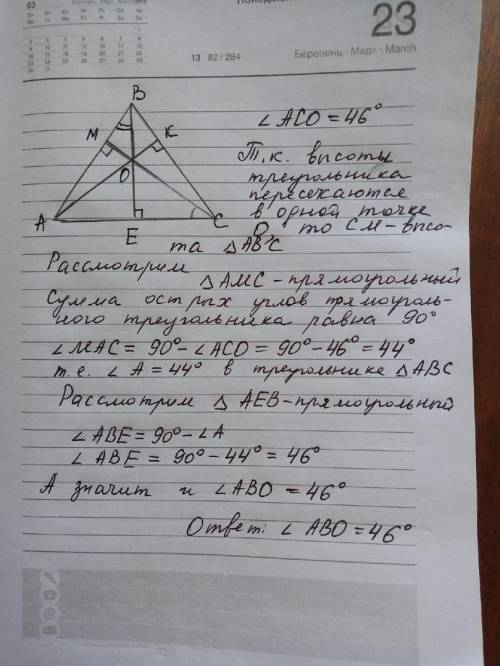 03
Березень Март March
Понеділок
23
13 82 / 284
Березень · Март · March
B
M
K
O
A
E
C
∠ACO = 46°
Т.к. высоты
треугольника
пересекаются
в одной точке
О, то СМ – высо-
та △ABC
Рассмотрим
△AMC – прямоугольный
Сумма острых углов прямоуголь-
ного треугольника равна 90°
∠MAC = 90° - ∠ACO = 90° - 46° = 44°
т.е. ∠A = 44° в треугольнике △ABC
Рассмотрим △AEB – прямоугольный
∠ABE = 90° - ∠A
∠ABE = 90° - 44° = 46°
А значит и ∠ABO = 46°
Ответ: ∠ABO = 46°